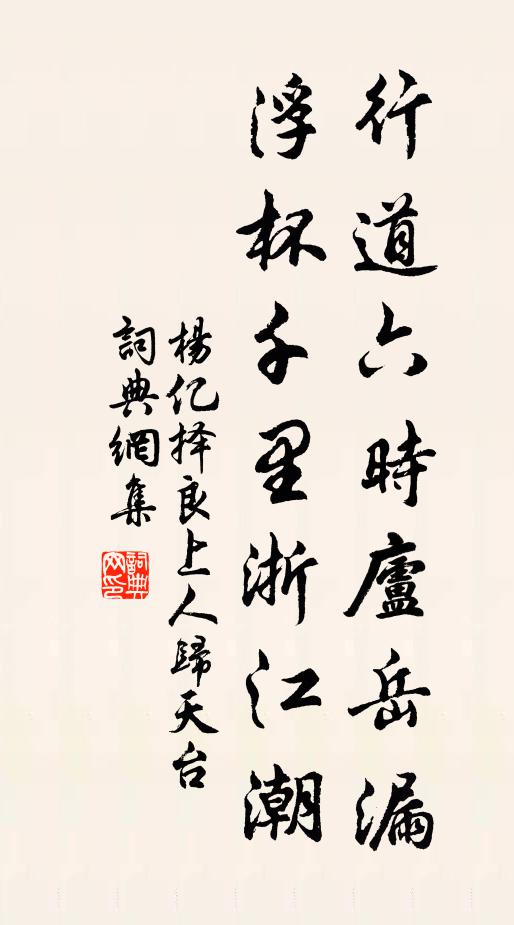 行道六時廬岳漏
浮杯千里浙江潮
楊亿择良上人歸天台
詞典網集
詞典网印